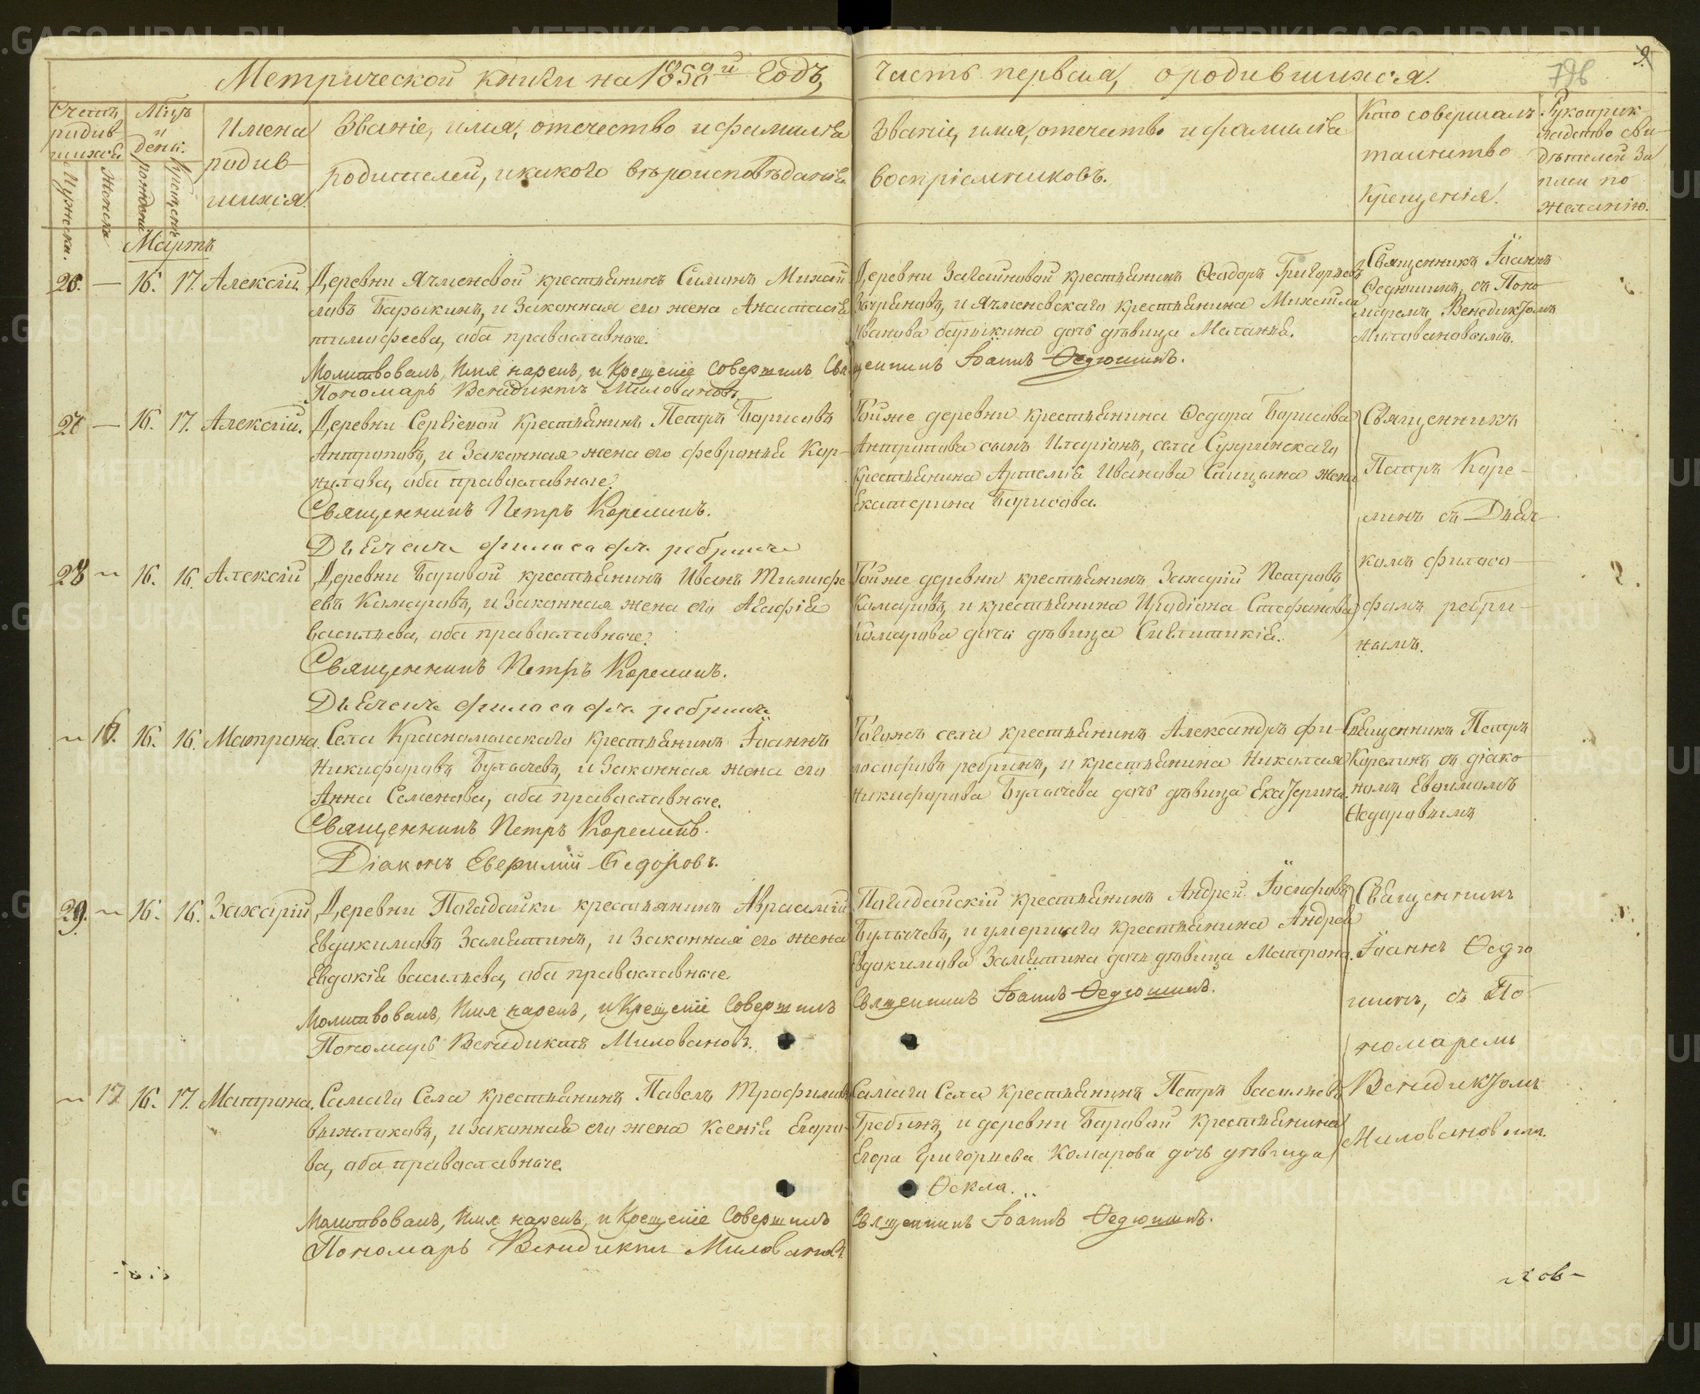 Метрической книги на 1858й годъ,
часть первая, о родившихся.
Счетъ родившихся
Мужска.
Женска
Мѣсяцъ и день.
рожденія
крещенія
Имена родившихся.
Званіе, имя, отечество и фамилія
родителей, и какого вѣроисповѣданія.
Званіе, имя, отечество и фамилія
воспріемниковъ.
Кто совершалъ
таинство
крещенія.
Рукоприкладство свидѣтелей записи по желанію.
Мартъ
26. — 16. 17. Алексѣй. Деревни Ячменевой крестьянинъ Симонъ Михай-
ловъ Барыкинъ, и законная его жена Анастасія
тимофеева, оба православные.
Молитвовалъ, Имя нарекъ, и Крещеніе Совершилъ Священникъ Іоаннъ Ѳедюшинъ.
Пономарь Венедиктъ Миловановъ
Деревни крестьянинъ Ѳеодоръ Григорьевъ
и Ячменевскаго крестьянина Михаила
Иванова барыкина дочь дѣвица Маланья.
Священникъ Іоаннъ
Ѳедюшинъ, съ Поно-
маремъ Венедиктомъ
Миловановымъ.
27 — 16. 17. Алексѣй. Деревни Сергіевой крестьянинъ Петръ Борисовъ
Антроповъ, и законная жена его февронья Кор-
нилова, оба православные.
Священникъ Петръ Корелинъ.
Дьячекъ филасафъ ребринъ
Тойже деревни крестьянина Ѳеодора Борисова
Антропова сынъ Иларіонъ, села
крестьянина Артемія Иванова жена
Екатерина Борисова.
Священникъ
Петръ Коре-
линъ съ Дьяч-
комъ филасо-
фомъ ребри-
нымъ.
28 — 16. 16. Алексѣй Деревни Боровой крестьянинъ Иванъ Тимофе-
евъ Комаровъ, и законная жена его Агафія
васильева, оба православные.
Священникъ Петръ Корелинъ.
Дьячекъ филасафъ ребринъ
Тойже деревни крестьянинъ Захарій Петровъ
Комаровъ, и крестьянина Стефанова
Комарова дочь дѣвица
— 16. 16. 16. Матрона. Села крестьянинъ Іоаннъ
Никифоровъ Булычевъ, и законная жена его
Анна Семенова, оба православные.
Священникъ Петръ Корелинъ.
Діаконъ Евфимій Ѳедоровъ.
Тогожъ села крестьянинъ Александръ фи-
лосафовъ ребринъ, и крестьянина Николая
Никифорова Булычева дочь дѣвица Екатерина.
Священникъ Петръ
Корелинъ съ діако-
номъ Евфимомъ
Ѳедоровымъ
29. — 16. 16. Захарій Деревни Погадайки крестьянинъ Авраамій
Евдокимовъ Замятинъ, и законная его жена
Евдокія васильева, оба православные.
Молитвовалъ, Имя нарекъ, и Крещеніе Совершилъ Священникъ Іоаннъ Ѳедюшинъ.
Пономарь Венедиктъ Миловановъ.
Погадайскій крестьянинъ Андрей Іосифовъ
Булычевъ, и умершаго крестьянина Андрея
Евдокимова Замятина дочь дѣвица Матрона.
Священникъ
Іоаннъ Ѳедю-
шинъ, съ По-
номаремъ
Венедиктомъ
Миловановымъ.
— 17. 16. 17. Матрона. Самаго Села крестьянинъ Павелъ Трофимовъ
и законная его жена Ксенія Егоро-
ва, оба православные.
Молитвовалъ, Имя нарекъ, и Крещеніе Совершилъ Священникъ Іоаннъ Ѳедюшинъ.
Пономарь Венедиктъ Миловановъ
Самаго Села крестьянинъ Петръ васильевъ
Гребинъ, и деревни Боровой крестьянина
Егора Григорьева Комарова дочь дѣвица
Ѳекла.
METRIKI.GASO-URAL.RU